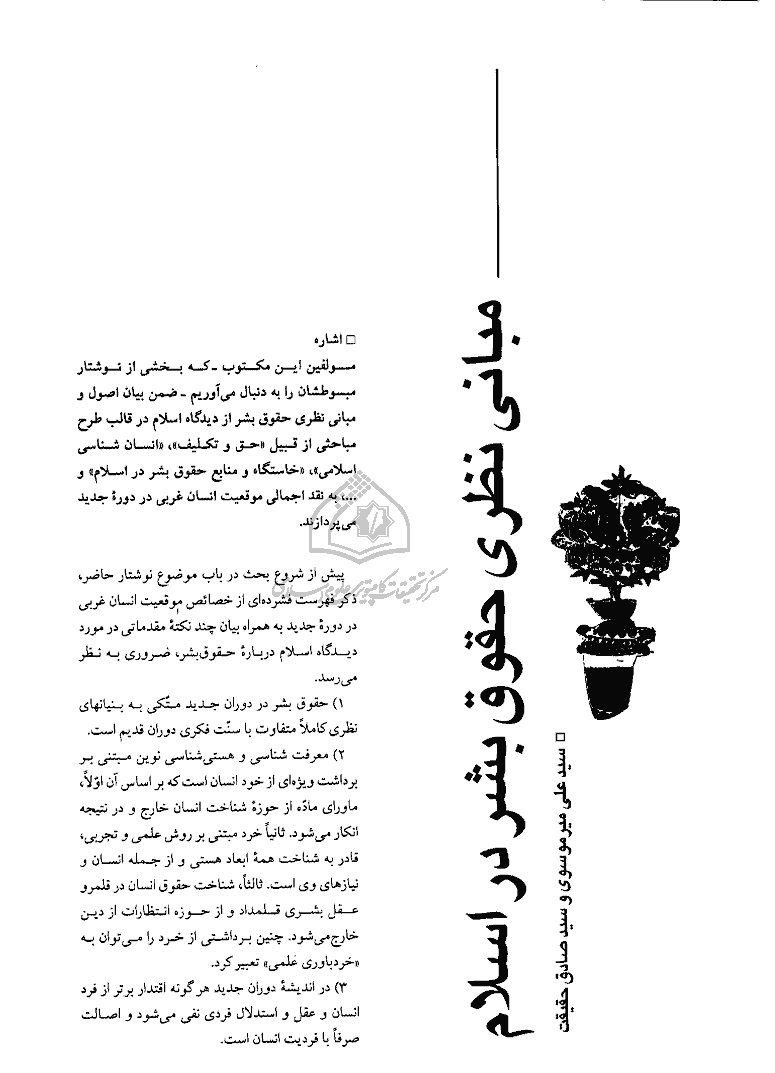 مبانی نظری حقوق بشر در اسلام
□ سید علی میرموسوی و سید صادق حقیقت
□ اشاره
مسولفین ایـن مکـتوب ـ کـه بـخشی از نـوشتار
مبسوطشان را به دنبال می‌آوریم ـ ضمن بیان اصول و
مبانی نظری حقوق بشر از دیدگاه اسلام در قالب طرح
مباحثی از قبیل «حـق و تکـلیف»، «انسـان شناسی
اسلامی»، «خاستگاه و منابع حقوق بشر در اسلام» و
....، به نقد اجمالی موقعیت انسان غربی در دورهٔ جدید
می‌پردازند.
پیش از شروع بحث در باب موضوع نوشتار حاضر،
ذکر فهرست فشرده‌ای از خصائص موقعیت انسان غربی
در دورهٔ جدید به همراه بیان چند نکتهٔ مقدماتی در مورد
دیـدگاه اسـلام دربـارهٔ حـقوق‌بشر، ضـروری بـه نـظر
می‌رسد.
۱) حقوق بشر در دوران جـدید مـتّکی بـه بـنیانهای
نظری کاملاً متفاوت با سنّت فکری دوران قدیم است.
۲) معرفت شناسی و هستی‌شناسی نوین مـبتنی بـر
برداشت ویژه‌ای از خود انسان است که بر اساس آن اوّلاً،
ماورای مادّه از حوزهٔ شناخت انسان خارج و در نتیجه
انکار می‌شود. ثانیاً خرد مبتنی بر روش علمی و تجربی،
قادر به شناخت همهٔ ابعاد هستی و از جـمله انسـان و
نیازهای وی است. ثالثاً، شناخت حقوق انسان در قلمرو
عـقل بشـری قـلمداد و از حـوزه انـتظارات از دیـن
خارج‌می‌شود. چنین بـرداشـتی از خـرد را مـی‌توان بـه
«خردباوری عَلمی» تعبیر کرد.
۳) در اندیشهٔ دوران جدید هر گونه اقتدار برتر از فرد
انسان و عقل و استدلال فردی نفی می‌شود و اصـالت
صرفاً با فردیت انسان است.
مرکز تحقیقات کامپیوتری علوم اسلامی